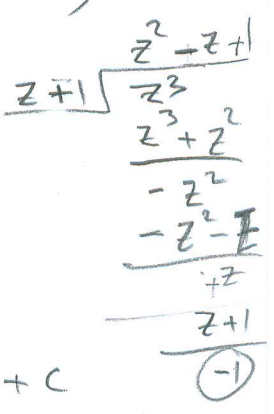 z² - z + 1
z + 1 z³
z³ + z²
- z²
- z² - z
+ z
z + 1
+ C -1